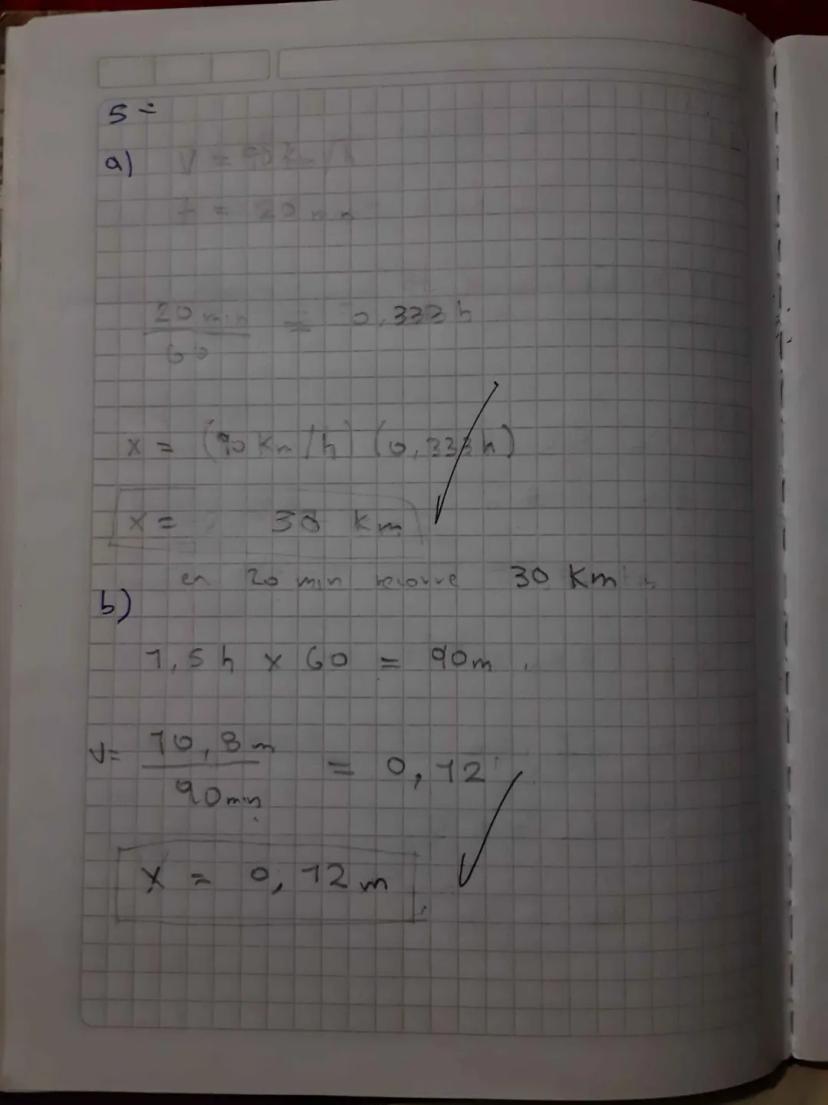 5=
a) V = 90 km/h
t = 20 min
20 min / 60 = 0,333 h
x = (90 Km/h) (0,333h)
x = 30 Km
en 20 min recorre 30 Km
b)
1,5 h x 60 = 90m.
v= 10,8 m / 90min = 0,12
x = 0,12 m